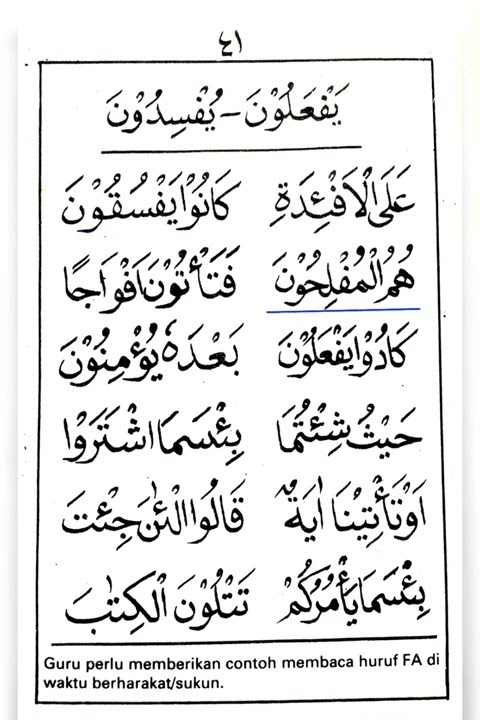 ٤١
يَفْعَلُوْنَ - يُفْسِدُوْنَ
عَلَى الْاَفْئِدَةِ كَانُوْا يَفْسُقُوْنَ
هُمُ الْمُفْلِحُوْنَ فَتَأْتُوْنَ اَفْوَاجًا
كَادُوْا يَفْعَلُوْنَ بَعْدَهٗ يُؤْمِنُوْنَ
حَيْثُ شِئْتُمَا بِئْسَمَا اشْتَرَوْا
اَوْ تَأْتِيْنَا اٰيَةٌ قَالُوا الْئٰنَ جِئْتَ
بِئْسَمَا يَأْمُرُكُمْ تَتْلُوْنَ الْكِتٰبَ
Guru perlu memberikan contoh membaca huruf FA di
waktu berharakat/sukun.